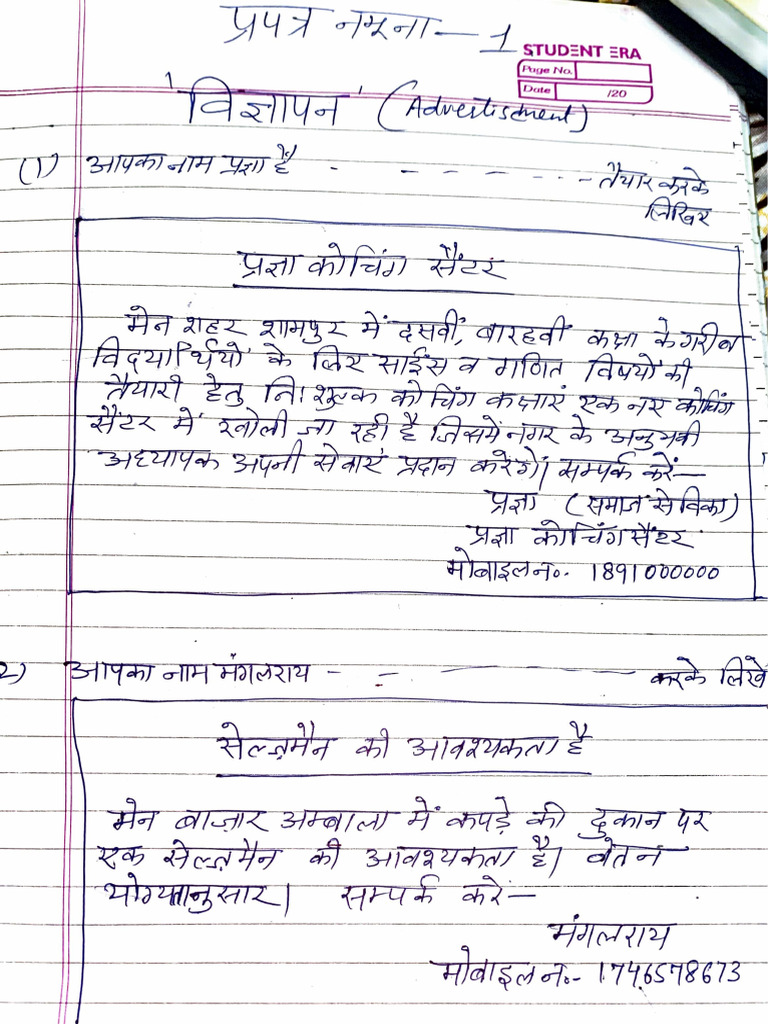 प्रपत्र नमूना — 1
STUDENT ERA
Page No.
Date /20
'विज्ञापन' (Advertisment)
(1) आपका नाम प्रज्ञा है - - - - - - - तैयार करके
लिखिए
प्रज्ञा कोचिंग सैंटर
मेन शहर शामपुर में दसवीं, बारहवीं कक्षा के गरीब
विद्यार्थियों के लिए साईंस व गणित विषयों की
तैयारी हेतु निःशुल्क कोचिंग कक्षाएं एक नए कोचिंग
सैंटर में खोली जा रही है जिसमें नगर के अनुभवी
अध्यापक अपनी सेवाएं प्रदान करेंगे। सम्पर्क करें—
प्रज्ञा (समाज सेविका)
प्रज्ञा कोचिंग सैंटर
मोबाइल न०. 1891000000
2) आपका नाम मंगलराय - - — — — करके लिखें
सेल्ज़मैन की आवश्यकता है
मेन बाज़ार अम्बाला में कपड़े की दुकान पर
एक सेल्ज़मैन की आवश्यकता है। वेतन
योग्यतानुसार। सम्पर्क करें—
मंगलराय
मोबाइल न०- 1746578673